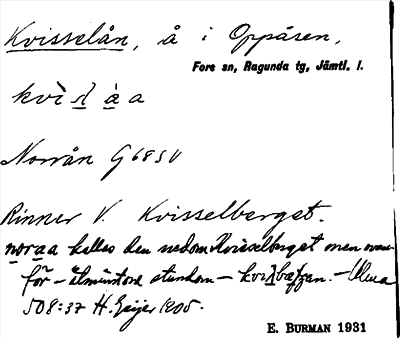 Kvisselån, å i Oppåsen,
Fors sn, Ragunda tg, Jämtl. l.
Norrån G 68 SV
Rinner V. Kvisselberget.
noraa kallas den nedom Kvisselberget men ovan-
för – åtminstone stundom –
508:37 H. Geijer 1905.
E. BURMAN 1931